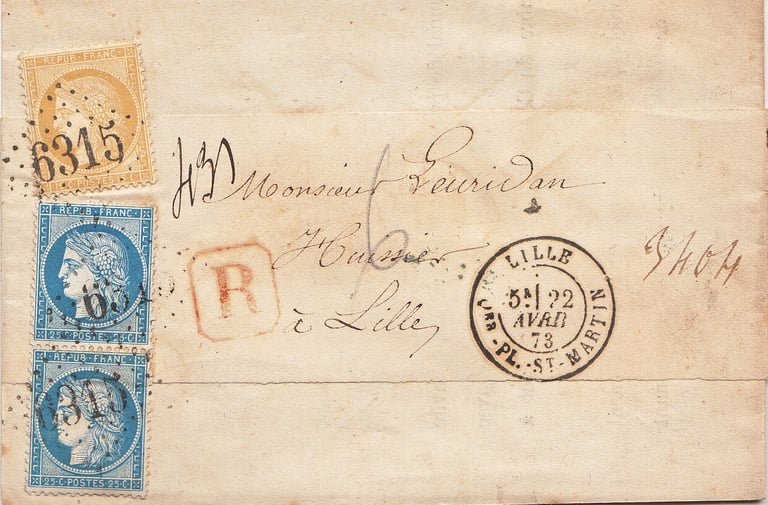 REPUB·FRANC·
POSTES
6315
REPUB·FRANC·
6315
25·C·POSTES·25·C
REPUB·FRANC·
6315
25·C·POSTES·25·C
Monsieur Leuridan
Huissier
à Lille
R
6
LILLE
22
AVRIL
73
PL.-ST-MARTIN
3404